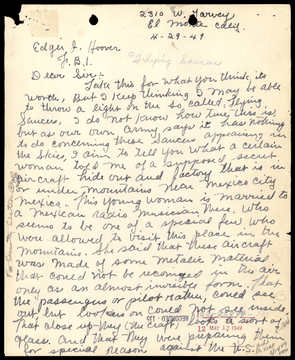 2310 W. Garvey
El Monte Calif
4-29-49
Edgar J. Hoover
F.B.I.
Flying Saucers
Dear Sir:-
Take this for what you think, its
worth, But I keep thinking I may be able
to throw a light on the so called, flying
Saucers, I do not know how true this is
but as our own Army says it has nothing
to do concerning these Saucers appearing in
the skies, I aim to tell you what a certain
woman told me of a supposed secret
aircraft hide out and factory that is in
or under mountains near Mexico city
Mexico. This young woman is married to
a Mexican radio musician, who
seems to be one of a special few who
were allowed to visit this place in the
mountains. She said that these aircraft
was made of some metalic material
that could not be recognized in the air
only as an almost invisible form. That
the passengers or pilot rather, could see
out, but lookers on could not see inside.
That close up they the craft, looks a sort of
glass. And that they were preparing them
for special reason against the U.S.
12 MAY 13 1949